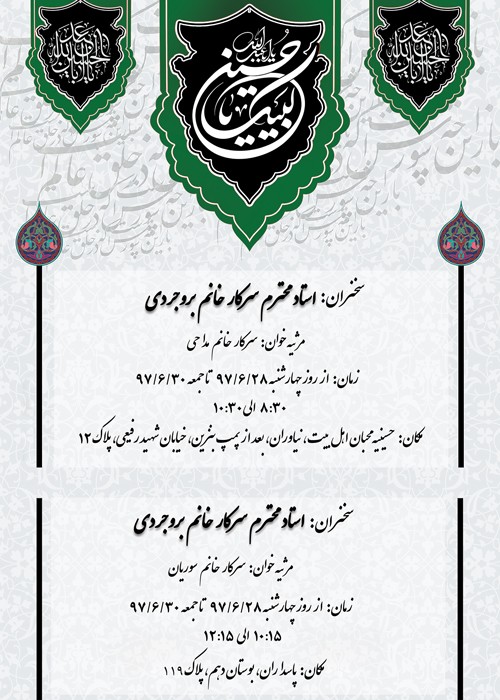 یا اباعبدالله
لبیک یا حسین
سخنران: استاد محترم سرکار خانم بروجردی
مرثیه خوان: سرکار خانم مداحی
زمان: از روز چهارشنبه ۹۷/۶/۲۸ تا جمعه ۹۷/۶/۳۰
۸:۳۰ الی ۱۰:۳۰
مکان: حسینیه محبان اهل بیت، نیاوران، بعد از پمپ بنزین، خیابان شهید رفیعی، پلاک ۱۲
سخنران: استاد محترم سرکار خانم بروجردی
مرثیه خوان: سرکار خانم سوریان
زمان: از روز چهارشنبه ۹۷/۶/۲۸ تا جمعه ۹۷/۶/۳۰
۱۰:۱۵ الی ۱۲:۱۵
مکان: پاسداران، بوستان دهم، پلاک ۱۱۹